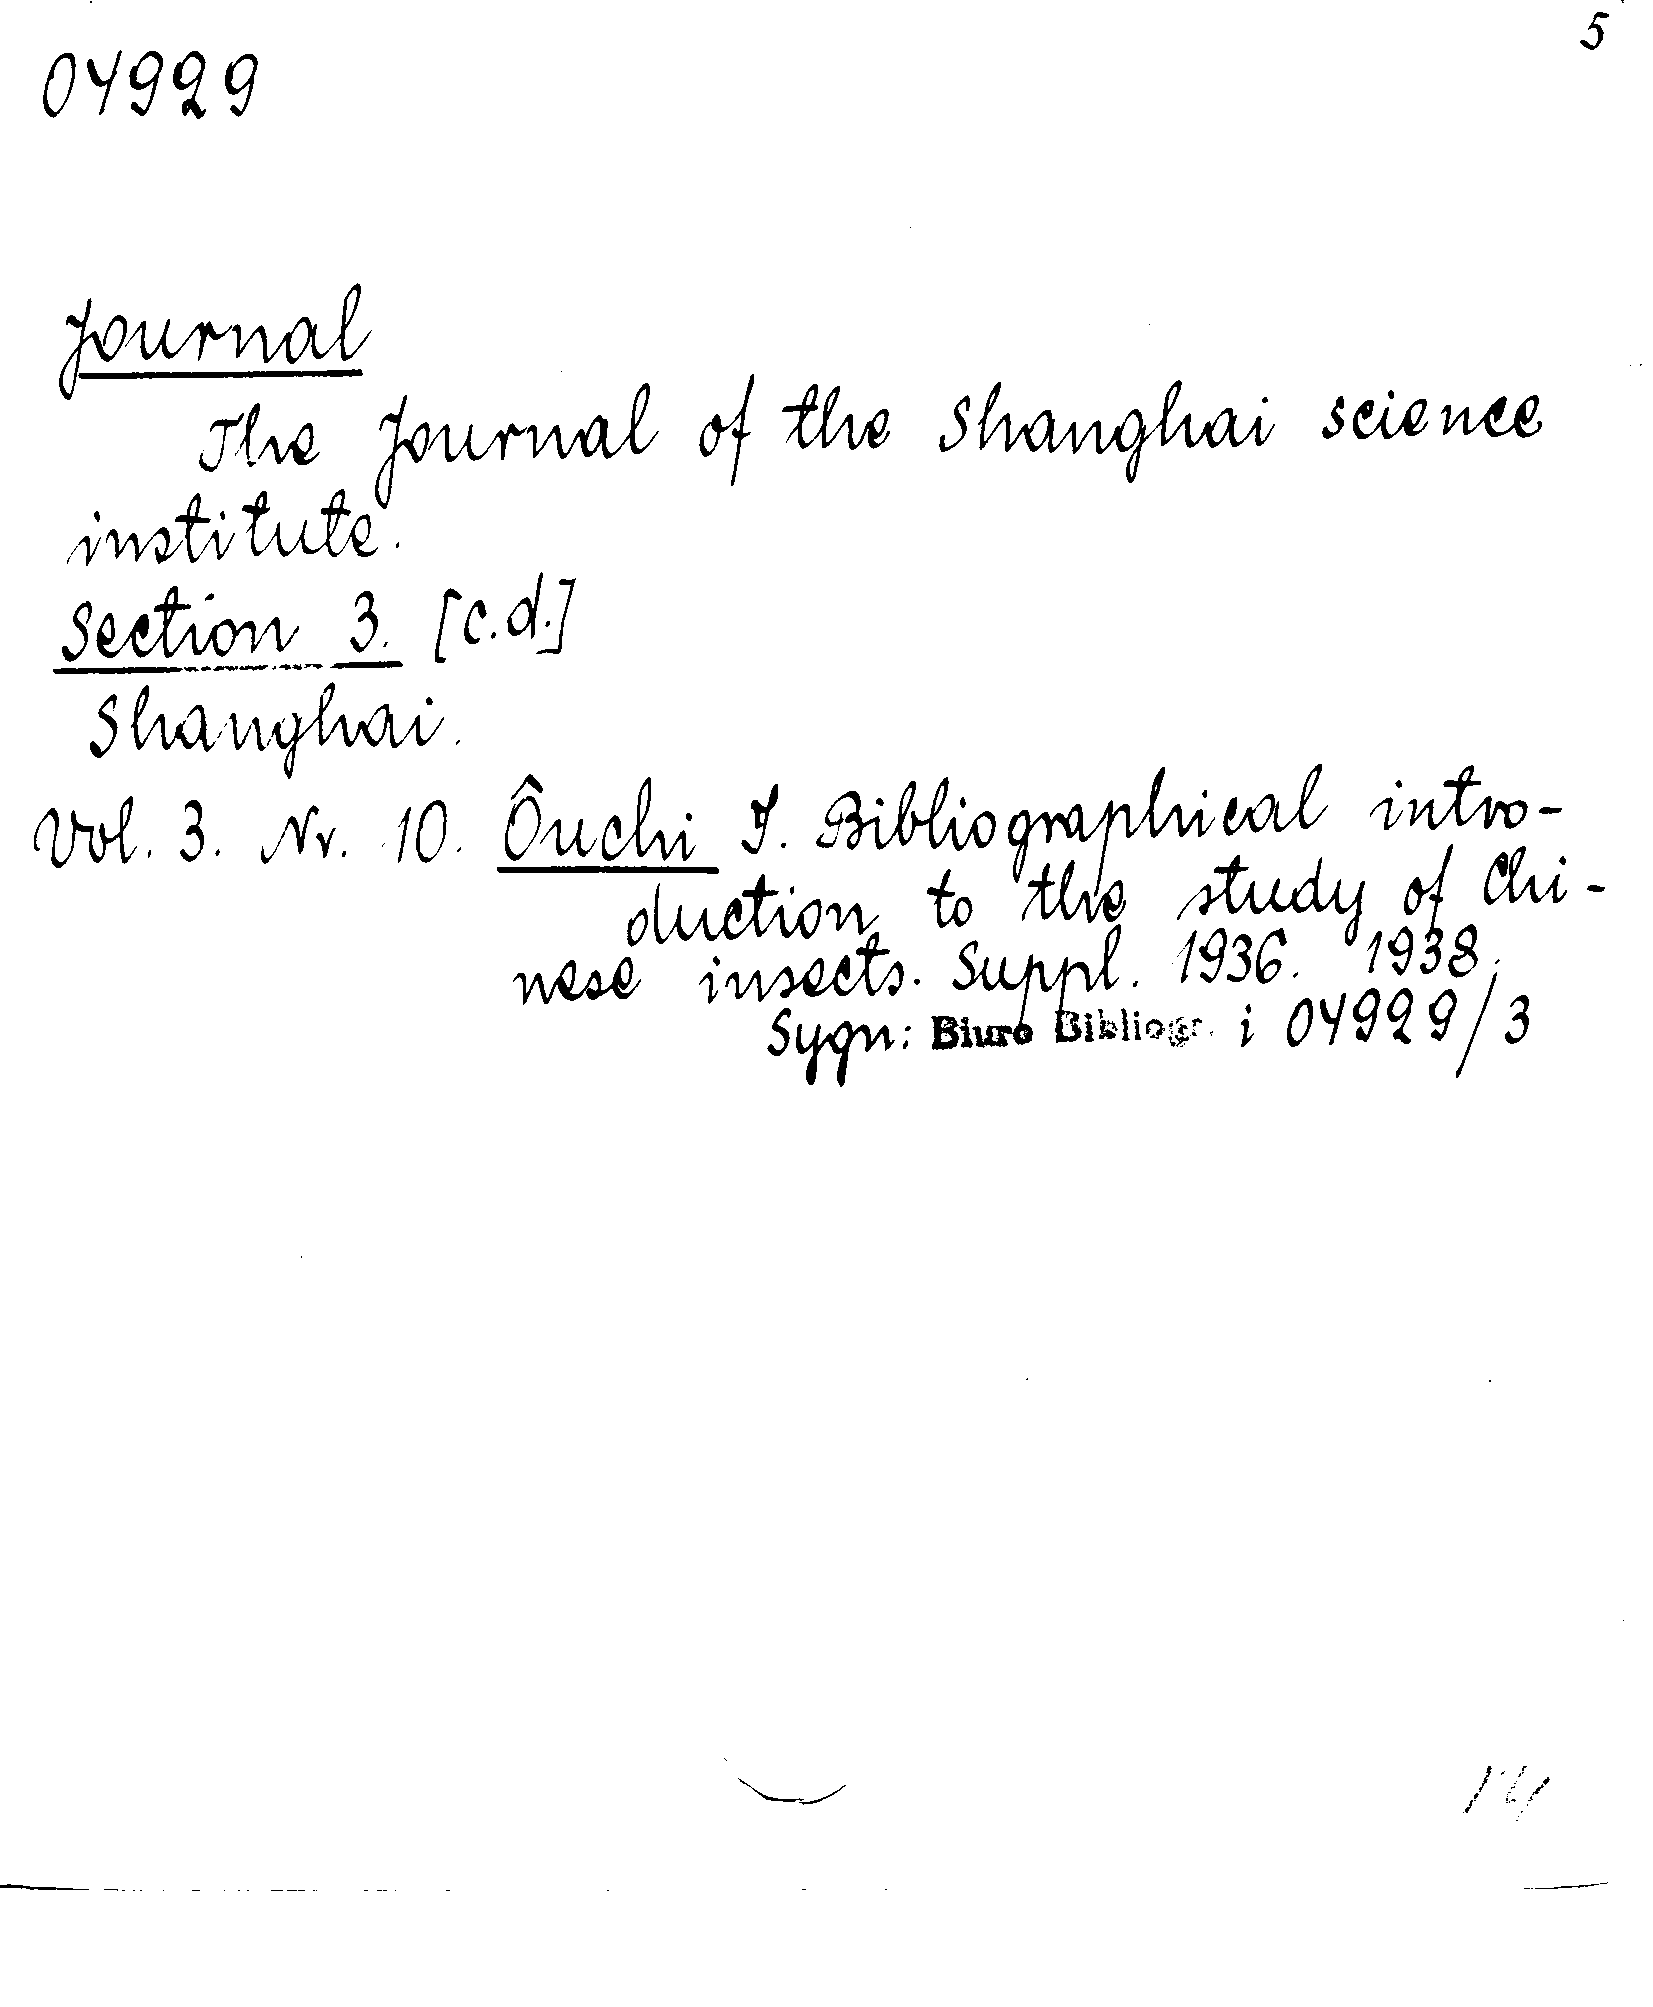 5
04929
Journal
The Journal of the Shanghai science
institute.
Section 3. [c.d.]
Shanghai.
Vol. 3. Nr. 10. Ôuchi Y. Bibliographical intro-
duction to the study of Chi-
nese insects. Suppl. 1936. 1938.
Sygn: Biuro Bibliogr. i 04929/3